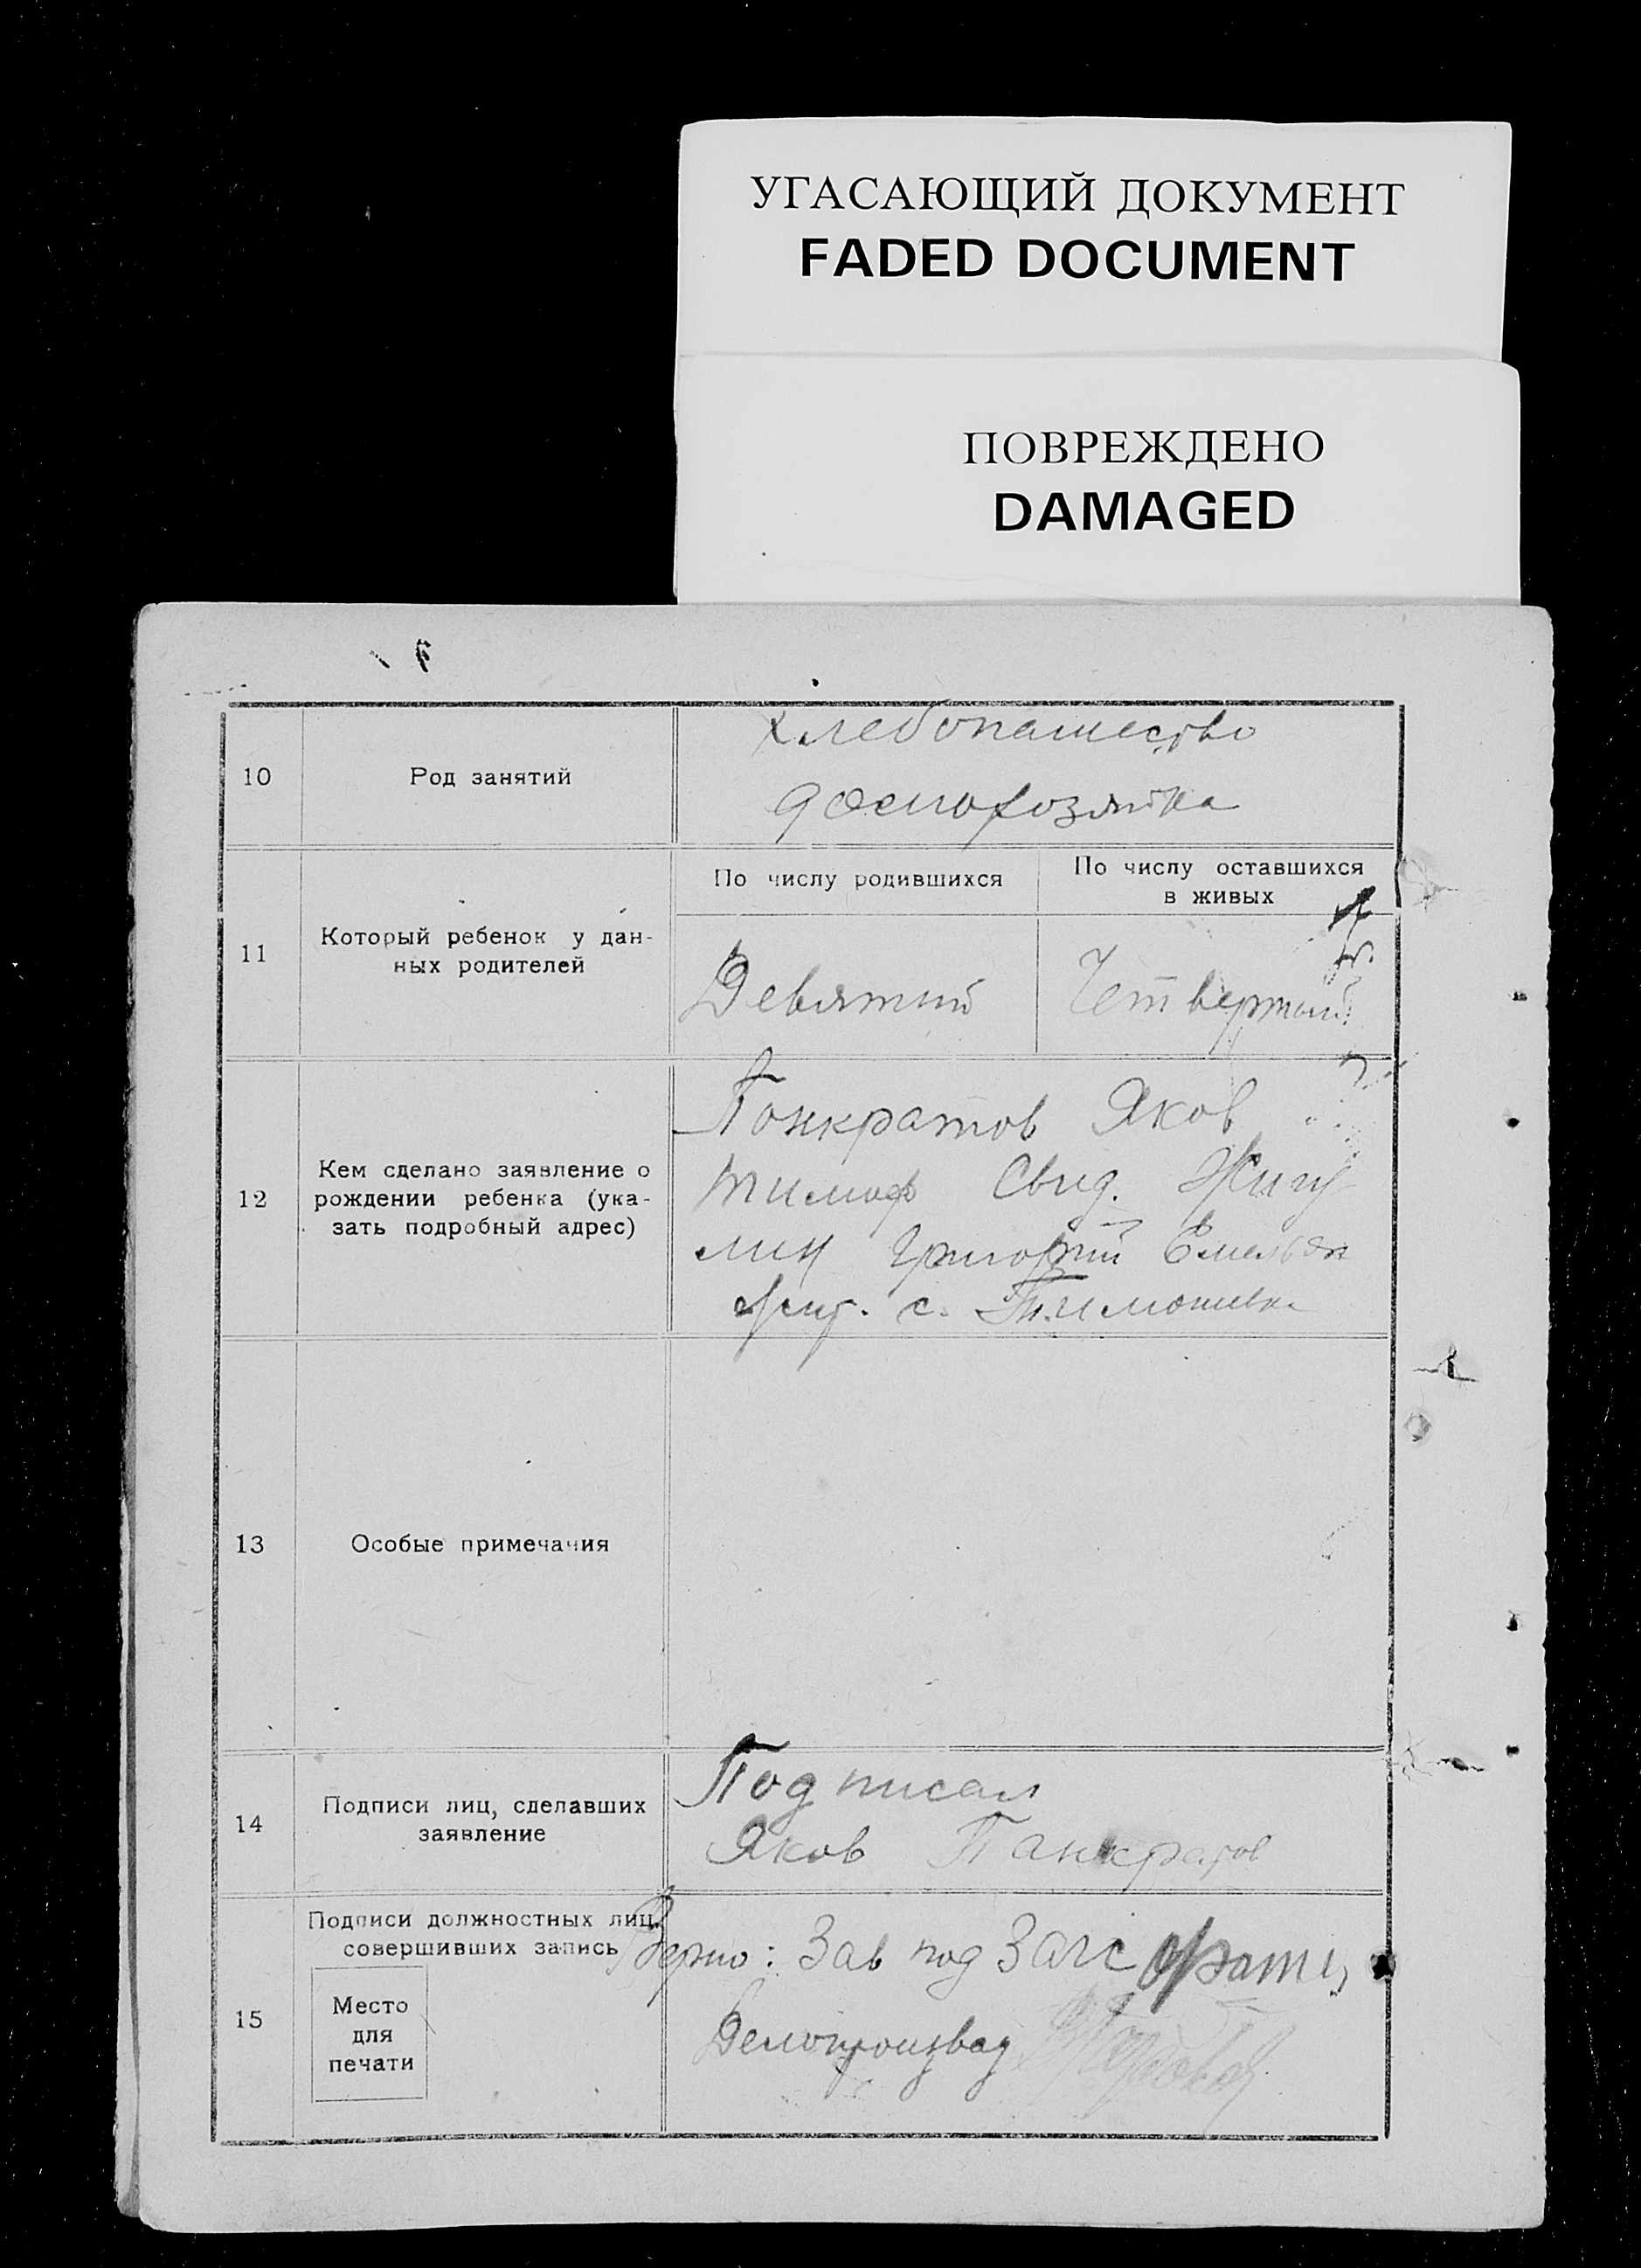 УГАСАЮЩИЙ ДОКУМЕНТ
FADED DOCUMENT
ПОВРЕЖДЕНО
DAMAGED
10
Род занятий
хлебопашество
домохозяйка
11
Который ребенок у дан-
ных родителей
По числу родившихся
По числу оставшихся
в живых
Девятий
Четвертый
12
Кем сделано заявление о
рождении ребенка (ука-
зать подробный адрес)
Понкратов Яков
тимоф Свид. Жигу
лин Григорий Емельян
с. Тимошевка
13
Особые примечания
14
Подписи лиц, сделавших
заявление
Подписал
Яков Панкратов
15
Подписи должностных лиц,
совершивших запись
Место
для
печати
Верно: Зав под Загс
Делопроизвод